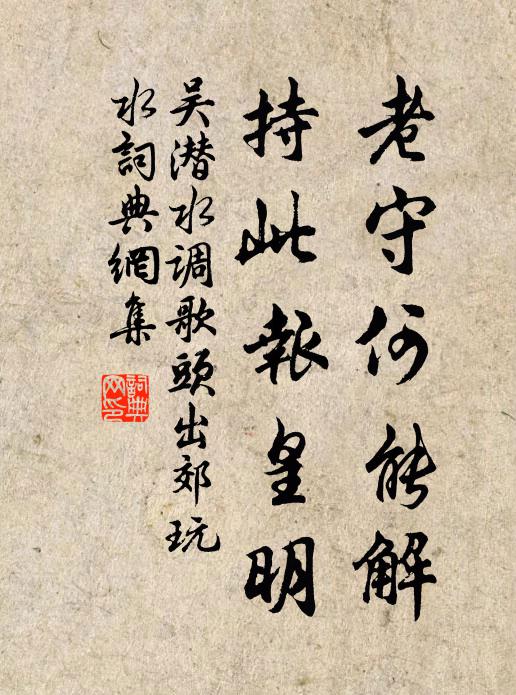 老守何能解
持此報皇明
吴潜水调歌頭出郊玩
水詞典網集
詞典网印